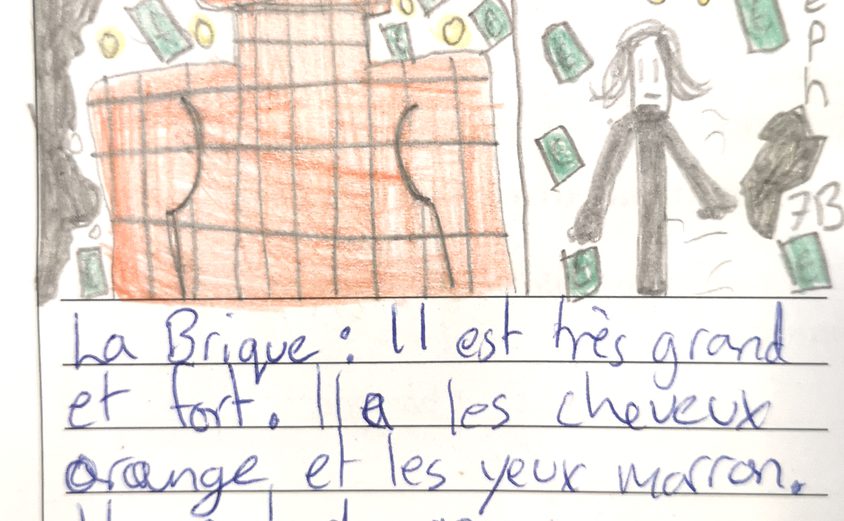 eph
7B
La Brique : Il est très grand
et fort. Il a les cheveux
orange et les yeux marron.